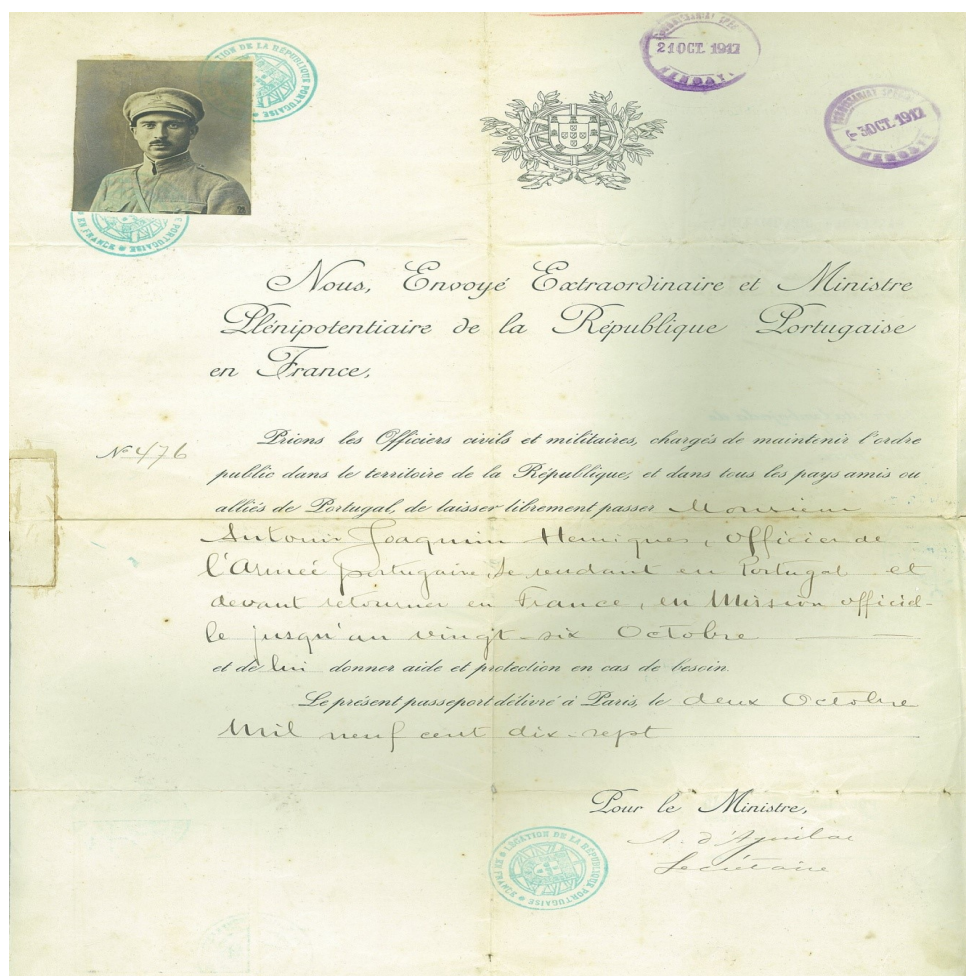 LEGATION DE LA RÉPUBLIQUE PORTUGAISE
EN FRANCE
21 OCT. 1917
HENDAYE
COMMISSARIAT SPECIAL
-3 OCT. 1917
HENDAYE
Nous, Envoyé Extraordinaire et Ministre
Plénipotentiaire de la République Portugaise
en France,
Nº 476
Prions les Officiers civils et militaires, chargés de maintenir l'ordre
public dans le territoire de la République, et dans tous les pays amis ou
alliés de Portugal, de laisser librement passer Monsieur
Antonio Joaquim Henriques, officier de
l'Armée portugaise, se rendant en Portugal et
devant retourner en France, en Mission officiel-
le jusqu'au vingt-six Octobre
et de lui donner aide et protection en cas de besoin.
Le présent passeport délivré à Paris, le deux Octobre
Mil neuf cent dix-sept
Pour le Ministre,
A. d'Aguilar
Secrétaire
LEGATION DE LA RÉPUBLIQUE PORTUGAISE EN FRANCE